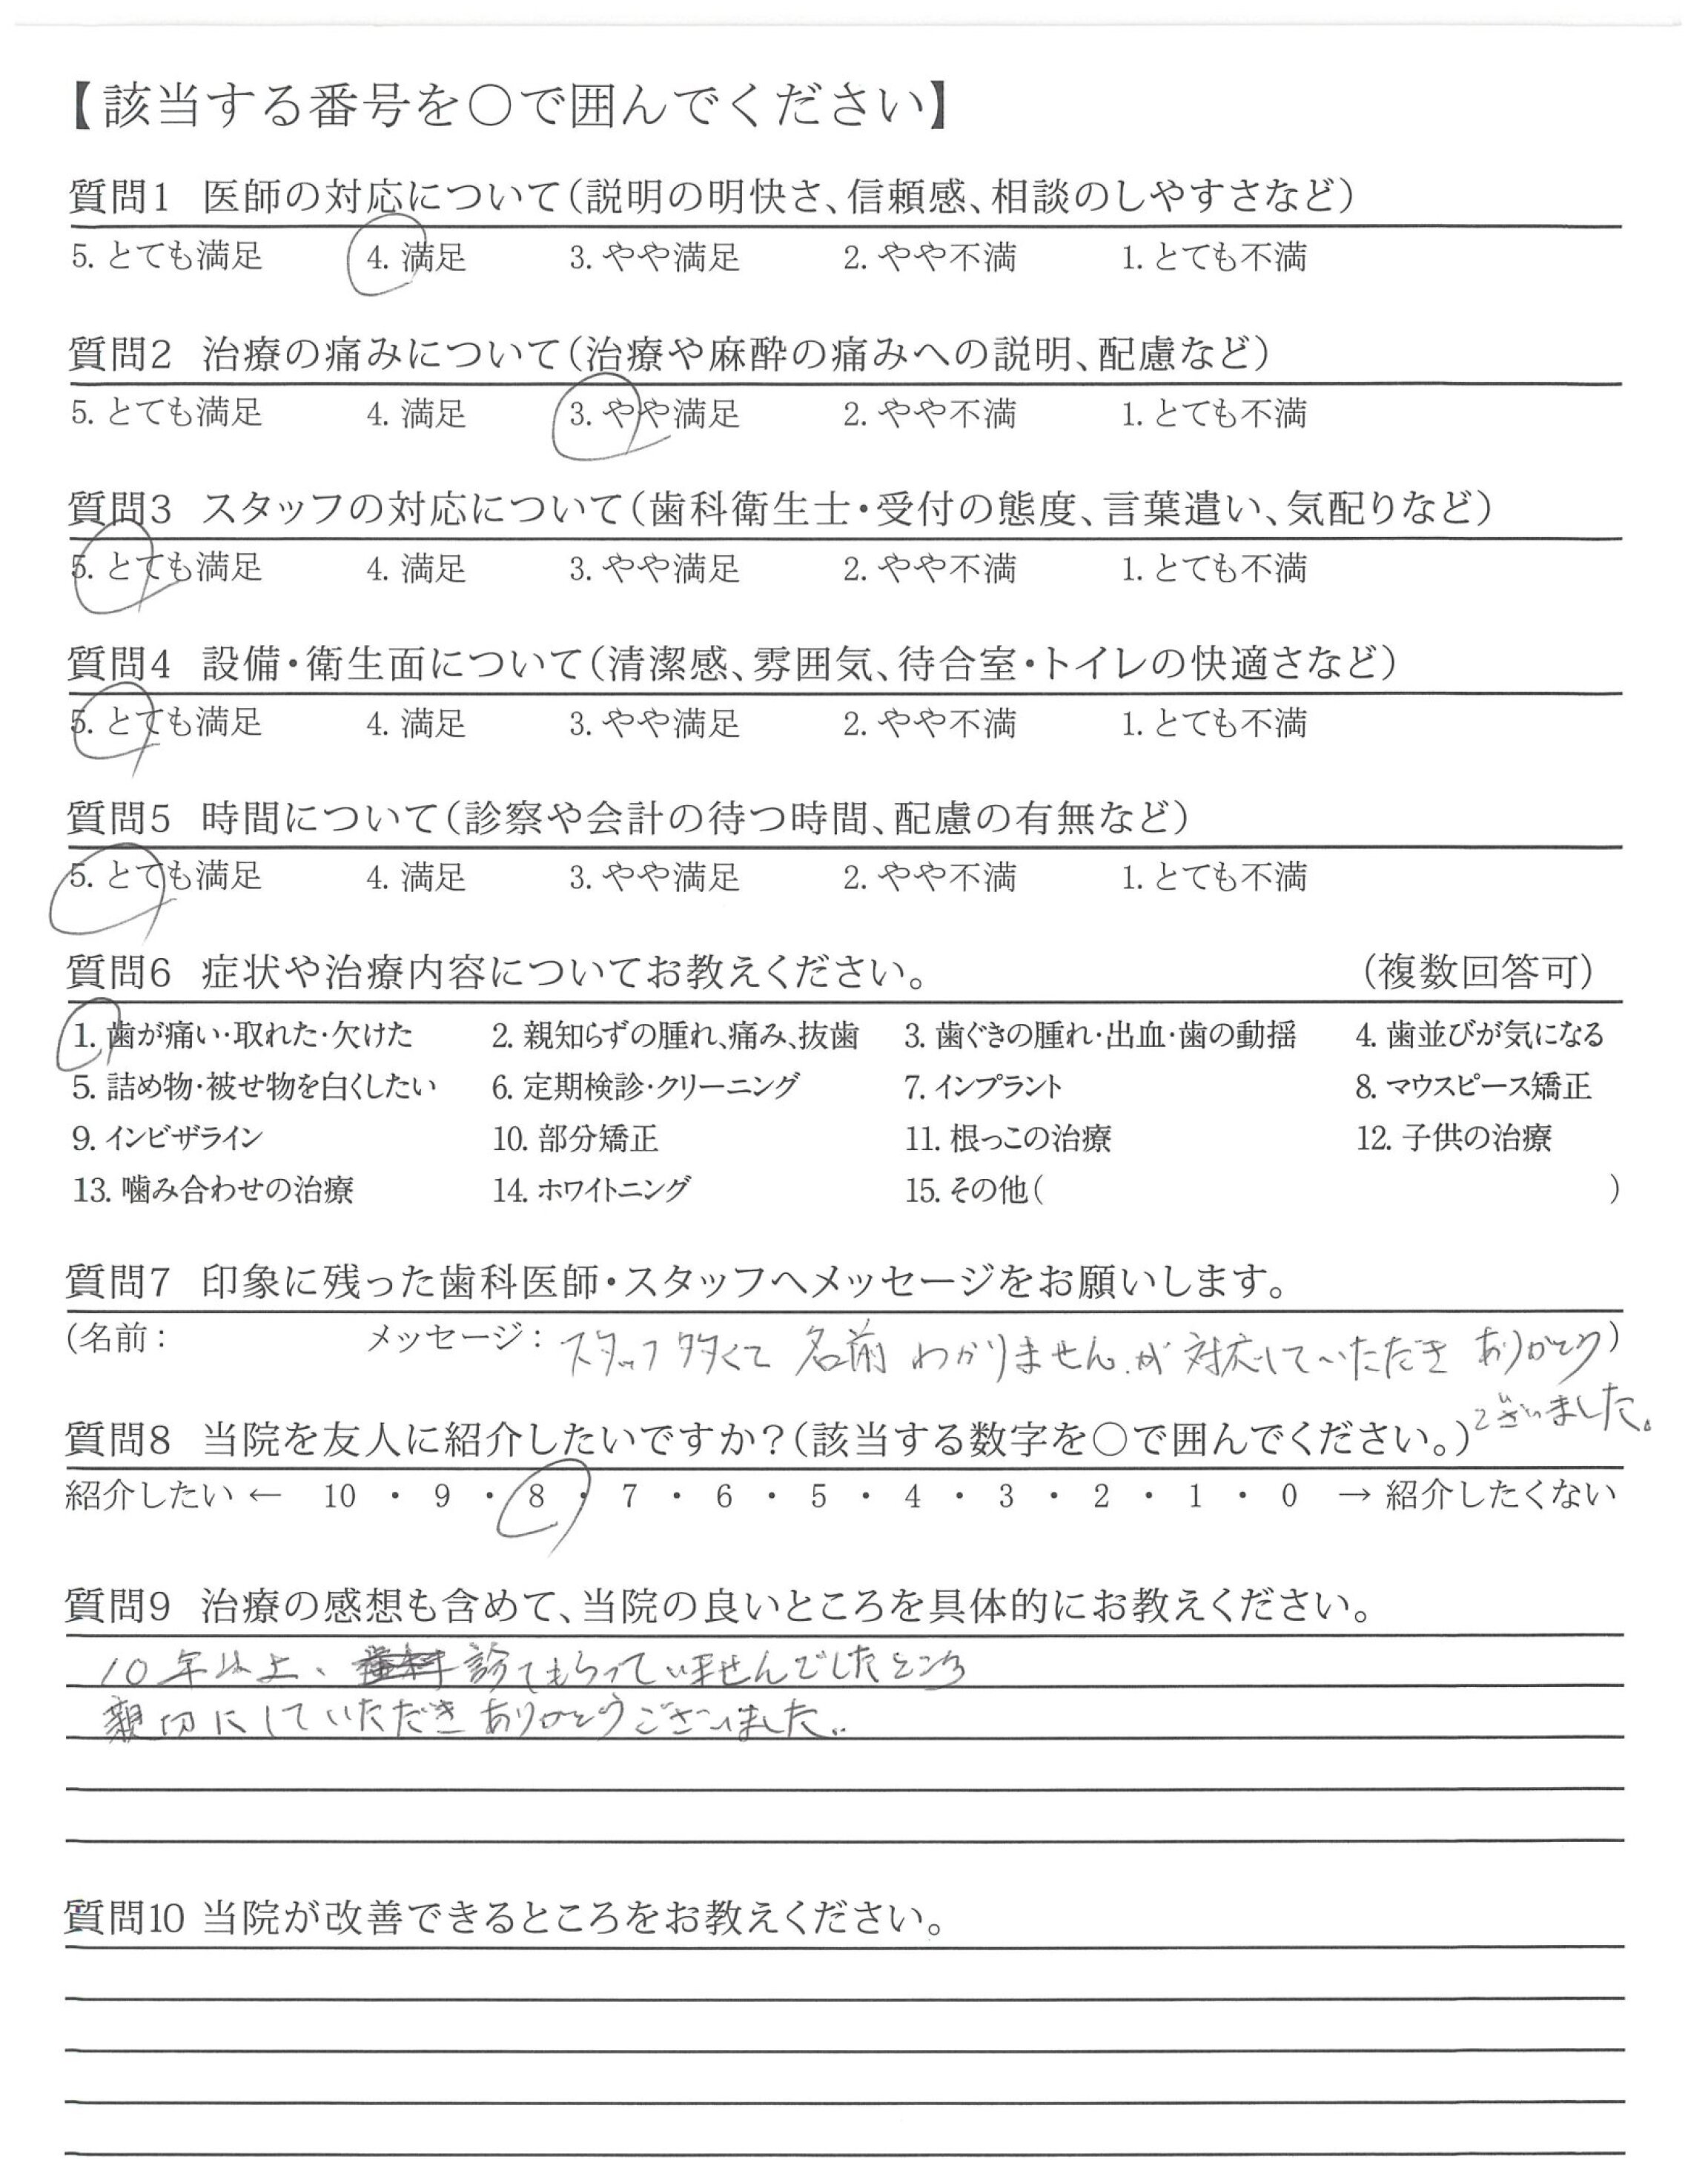 【該当する番号を○で囲んでください】
質問1 医師の対応について(説明の明快さ、信頼感、相談のしやすさなど)
5. とても満足 4. 満足 3. やや満足 2. やや不満 1. とても不満
質問2 治療の痛みについて(治療や麻酔の痛みへの説明、配慮など)
5. とても満足 4. 満足 3. やや満足 2. やや不満 1. とても不満
質問3 スタッフの対応について(歯科衛生士・受付の態度、言葉遣い、気配りなど)
5. とても満足 4. 満足 3. やや満足 2. やや不満 1. とても不満
質問4 設備・衛生面について(清潔感、雰囲気、待合室・トイレの快適さなど)
5. とても満足 4. 満足 3. やや満足 2. やや不満 1. とても不満
質問5 時間について(診察や会計の待つ時間、配慮の有無など)
5. とても満足 4. 満足 3. やや満足 2. やや不満 1. とても不満
質問6 症状や治療内容についてお教えください。 (複数回答可)
1. 歯が痛い・取れた・欠けた 2. 親知らずの腫れ、痛み、抜歯 3. 歯ぐきの腫れ・出血・歯の動揺 4. 歯並びが気になる
5. 詰め物・被せ物を白くしたい 6. 定期検診・クリーニング 7. インプラント 8. マウスピース矯正
9. インビザライン 10. 部分矯正 11. 根っこの治療 12. 子供の治療
13. 噛み合わせの治療 14. ホワイトニング 15. その他( )
質問7 印象に残った歯科医師・スタッフへメッセージをお願いします。
(名前: メッセージ: スタッフ多くて 名前 わかりませんが 対応していただき ありがとう)
ございました。
質問8 当院を友人に紹介したいですか?(該当する数字を○で囲んでください。)
紹介したい ← 10 ・ 9 ・ 8 ・ 7 ・ 6 ・ 5 ・ 4 ・ 3 ・ 2 ・ 1 ・ 0 → 紹介したくない
質問9 治療の感想も含めて、当院の良いところを具体的にお教えください。
10年以上、診てもらっていませんでしたところ
親切にしていただきありがとうございました。
質問10 当院が改善できるところをお教えください。